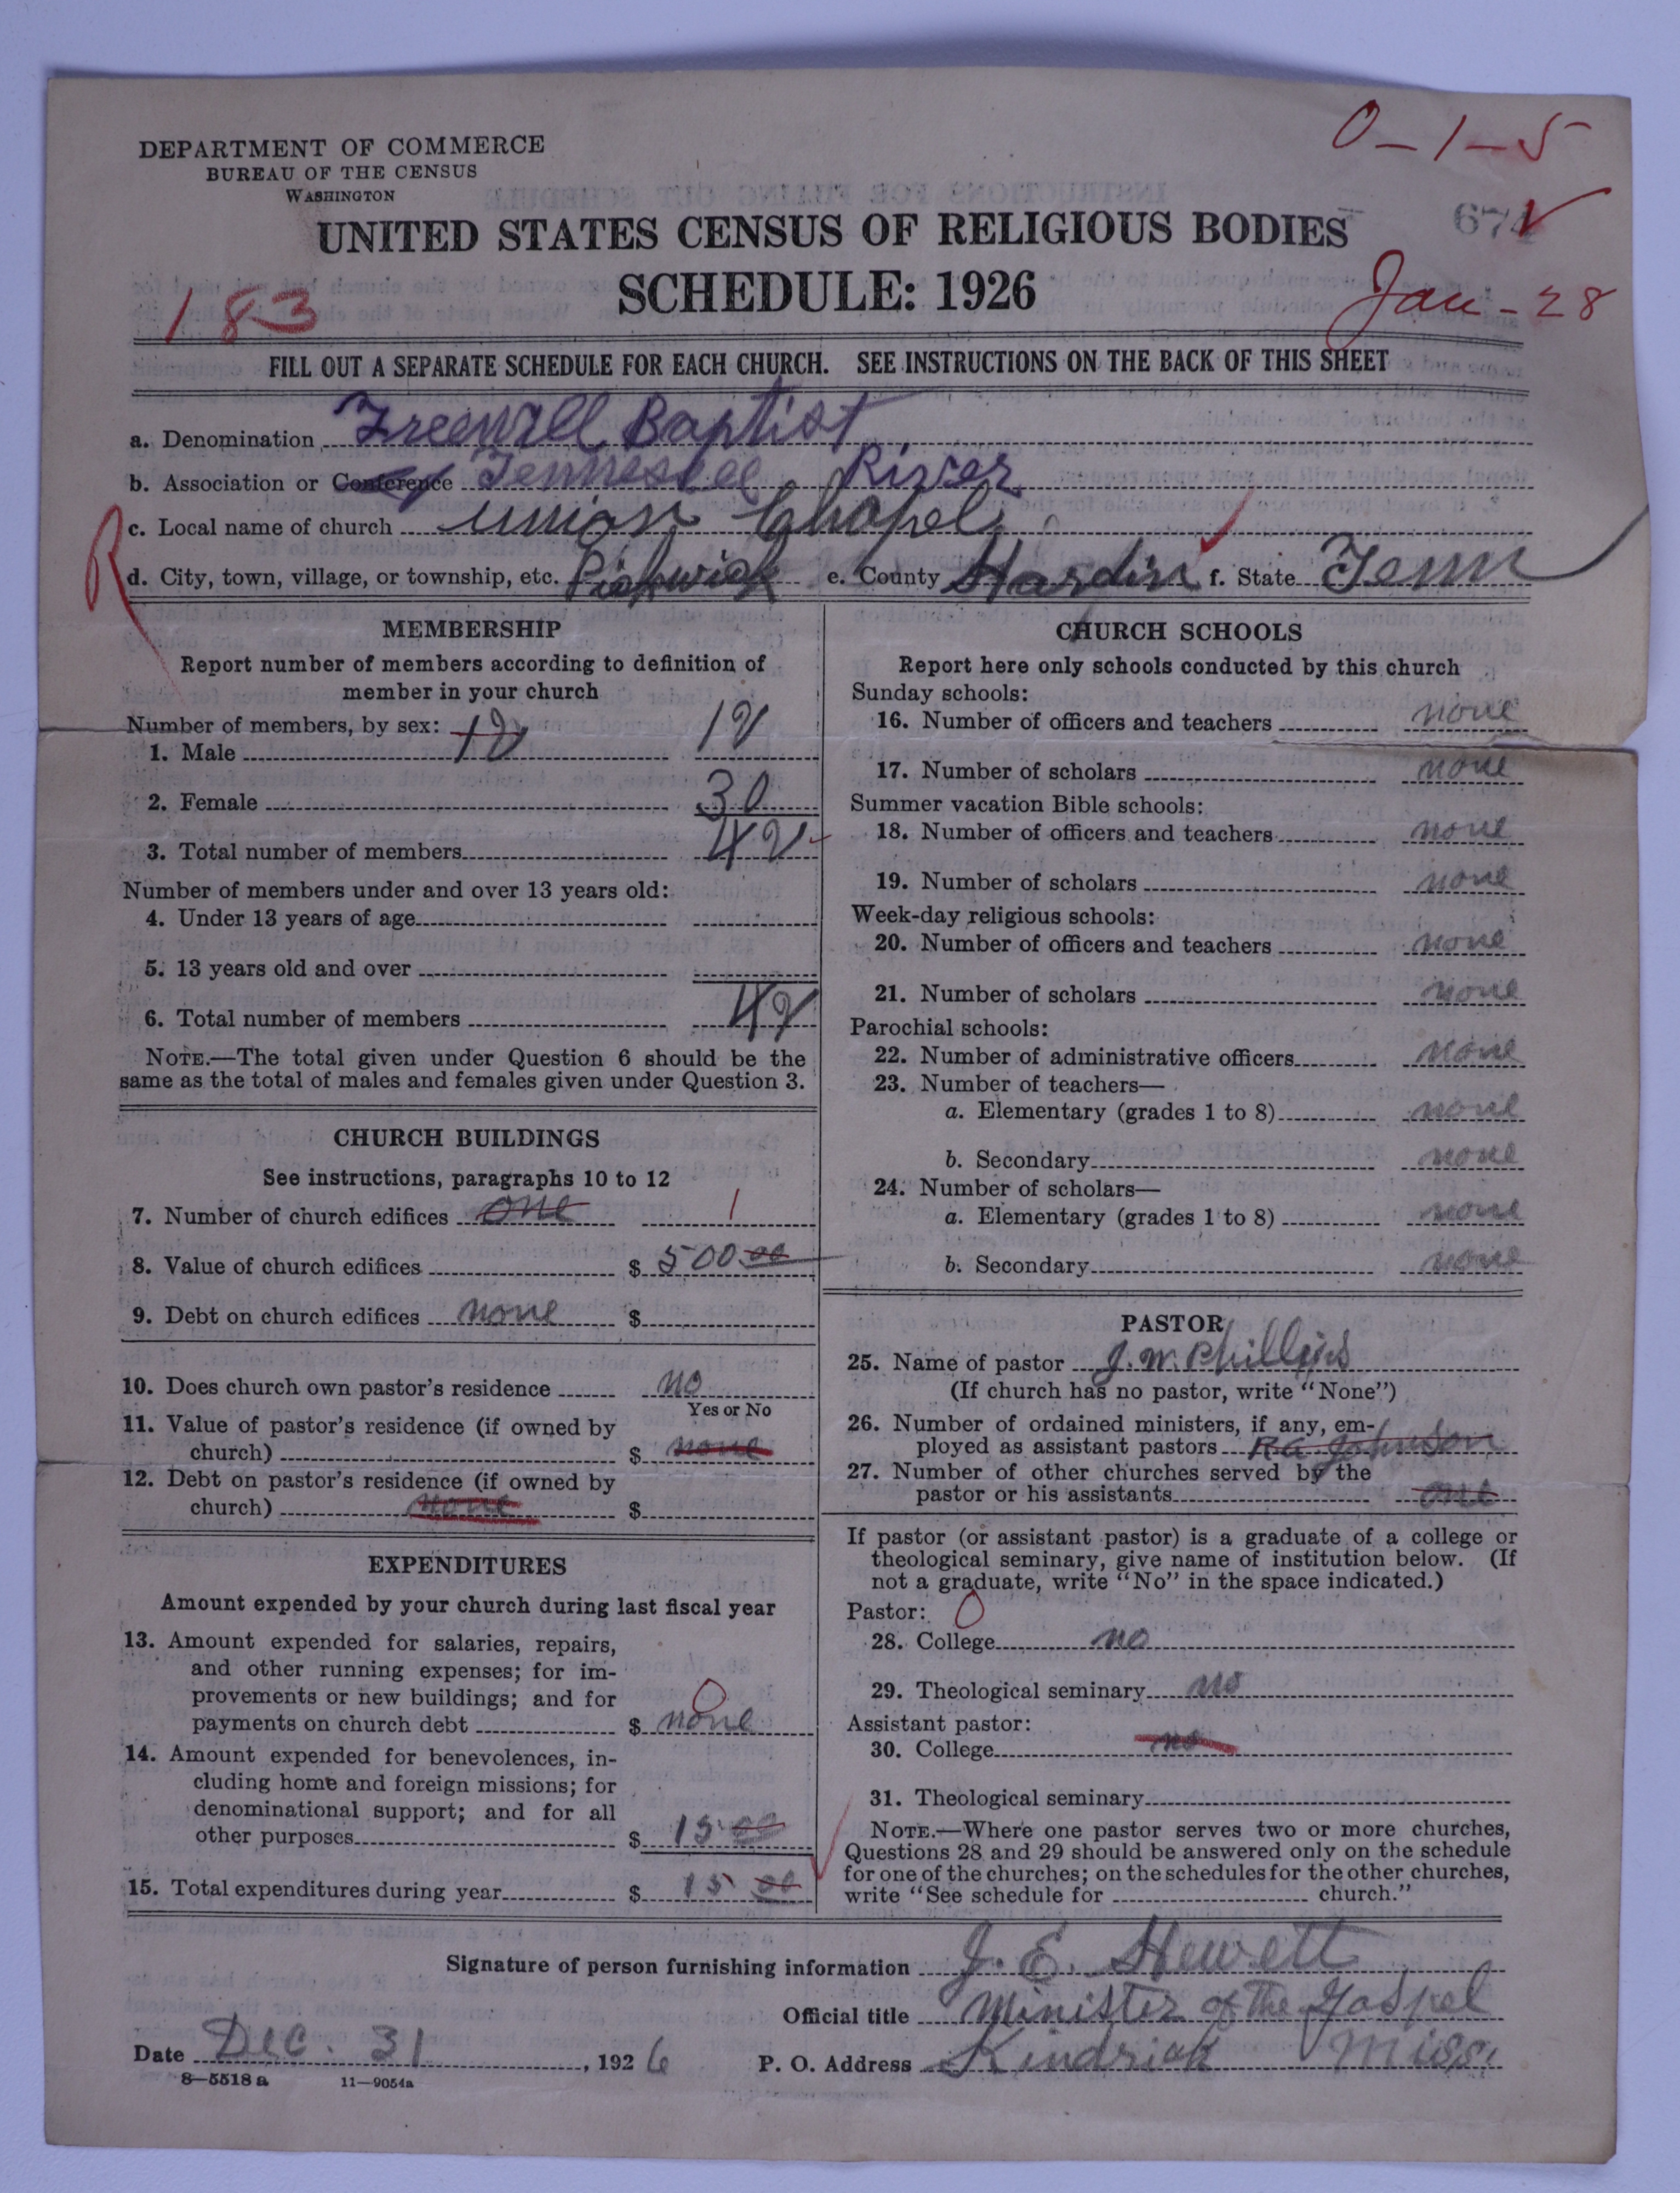 0-1-5
DEPARTMENT OF COMMERCE
BUREAU OF THE CENSUS
WASHINGTON
UNITED STATES CENSUS OF RELIGIOUS BODIES
SCHEDULE: 1926
183
Jan-28
FILL OUT A SEPARATE SCHEDULE FOR EACH CHURCH. SEE INSTRUCTIONS ON THE BACK OF THIS SHEET
a. Denomination Freewill Baptist
b. Association or Conference Tennessee River
c. Local name of church Union Chapel
d. City, town, village, or township, etc. Pickwick e. County Hardin f. State Tenn
R
MEMBERSHIP
Report number of members according to definition of
member in your church
Number of members, by sex:
1. Male 12 12
2. Female 30
3. Total number of members 42
Number of members under and over 13 years old:
4. Under 13 years of age
5. 13 years old and over
6. Total number of members 42
NOTE.—The total given under Question 6 should be the
same as the total of males and females given under Question 3.
CHURCH BUILDINGS
See instructions, paragraphs 10 to 12
7. Number of church edifices one 1
8. Value of church edifices $ 500.00
9. Debt on church edifices none $
10. Does church own pastor's residence no
Yes or No
11. Value of pastor's residence (if owned by
church) $ none
12. Debt on pastor's residence (if owned by
church) none $
EXPENDITURES
Amount expended by your church during last fiscal year
13. Amount expended for salaries, repairs,
and other running expenses; for im-
provements or new buildings; and for 0
payments on church debt $ none
14. Amount expended for benevolences, in-
cluding home and foreign missions; for
denominational support; and for all
other purposes $ 15.00
15. Total expenditures during year $ 15 00
CHURCH SCHOOLS
Report here only schools conducted by this church
Sunday schools:
16. Number of officers and teachers none
17. Number of scholars none
Summer vacation Bible schools:
18. Number of officers and teachers none
19. Number of scholars none
Week-day religious schools:
20. Number of officers and teachers none
21. Number of scholars none
Parochial schools:
22. Number of administrative officers none
23. Number of teachers—
a. Elementary (grades 1 to 8) none
b. Secondary none
24. Number of scholars—
a. Elementary (grades 1 to 8) none
b. Secondary none
PASTOR
25. Name of pastor J. W. Phillips
(If church has no pastor, write "None")
26. Number of ordained ministers, if any, em-
ployed as assistant pastors R.G. Johnson
27. Number of other churches served by the
pastor or his assistants one
If pastor (or assistant pastor) is a graduate of a college or
theological seminary, give name of institution below. (If
not a graduate, write "No" in the space indicated.)
Pastor: 0
28. College no
29. Theological seminary no
Assistant pastor:
30. College no
31. Theological seminary
NOTE.—Where one pastor serves two or more churches,
Questions 28 and 29 should be answered only on the schedule
for one of the churches; on the schedules for the other churches,
write "See schedule for church."
Signature of person furnishing information J. E. Hewett
Official title Minister of The Gospel
Date Dec. 31, 1926 P. O. Address Kindrick Miss.
8—5518a 11—9054a